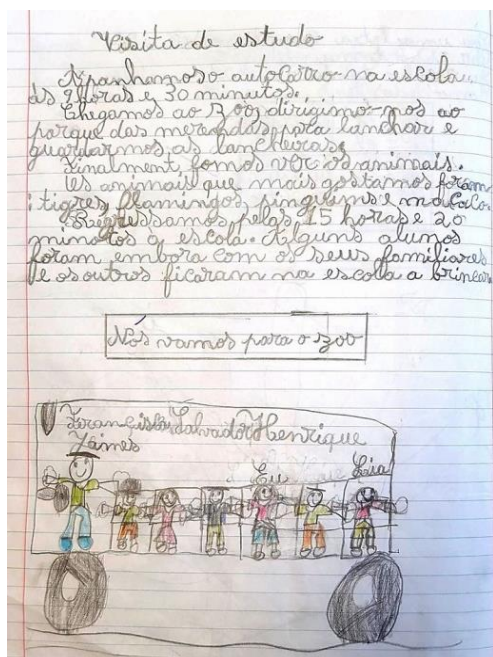 Visita de estudo
Apanhamos o autocarro na escola
às 9 horas e 30 minutos.
Chegamos ao zoo, dirigimo-nos ao
parque das merendas, para lanchar e
guardarmos as lancheiras.
Finalment fomos ver os animais.
Os animais que mais gostamos foram
: tigres, flamingos, pinguins e macaco.
Regressamos pelas 15 horas e 20
minutos à escola. Alguns alunos
foram embora com os seus familiares
e os outros ficaram na escola a brincar
Nós vamos para o zoo
Francisco Salvador Henrique
Jaimes
Eu
Lia